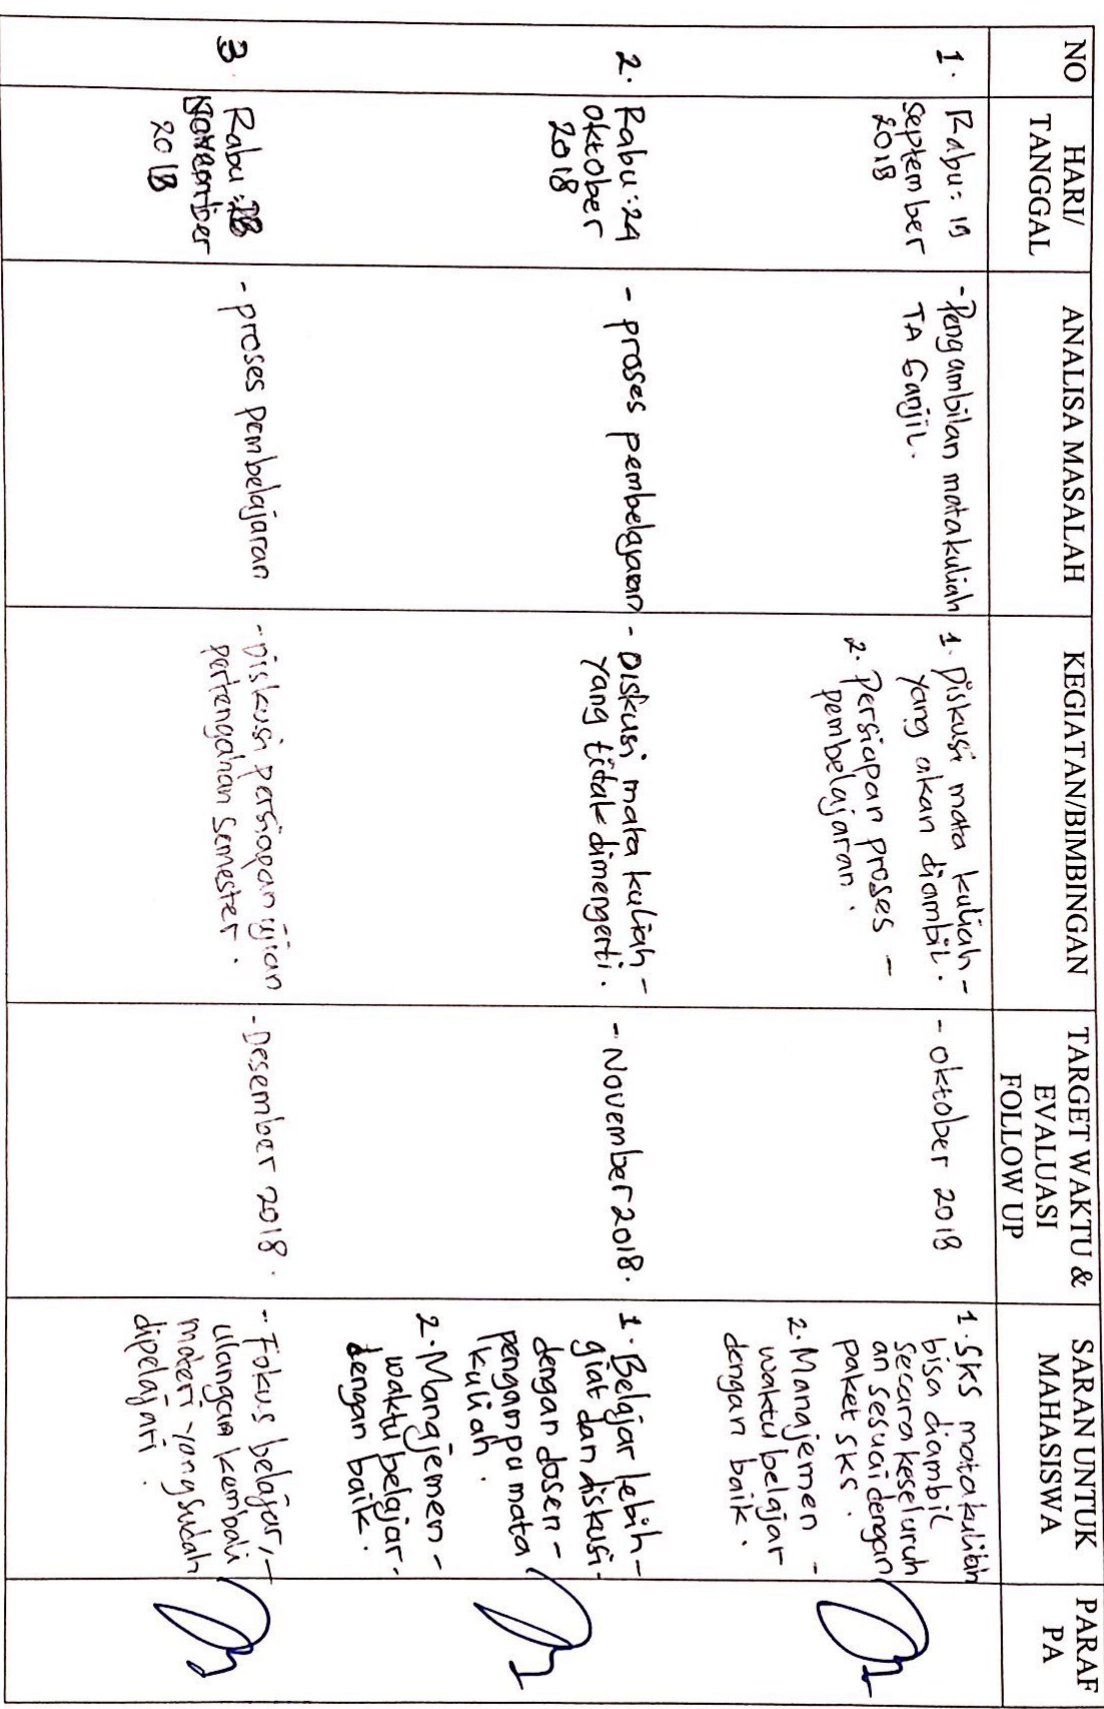 NO
HARI/
TANGGAL
ANALISA MASALAH
KEGIATAN/BIMBINGAN
TARGET WAKTU &
EVALUASI
FOLLOW UP
SARAN UNTUK
MAHASISWA
PARAF
PA
1.
Rabu: 19
September
2018
- Pengambilan matakuliah
TA Ganjil.
1. Diskusi mata kuliah -
yang akan diambil.
2. Persiapan proses -
pembelajaran.
- oktober 2018
1. SKS matakuliah
bisa diambil
secara keseluruh
an sesuai dengan
paket sks.
2. Manajemen -
waktu belajar
dengan baik.
2.
Rabu: 24
oktober
2018
- proses pembelajaran
- Diskusi mata kuliah -
yang titak dimengerti.
- November 2018.
1. Belajar lebih -
giat dan diskusi -
dengan dosen -
pengampu mata
kuliah.
2. Manajemen -
waktu belajar -
dengan baik.
3.
Rabu:
November
2018
- proses pembelajaran
- Diskusi persiapan ujian
pertengahan semester.
- Desember 2018.
- Fokus belajar, -
ulangan kembali
materi yang sudah
dipelajari.